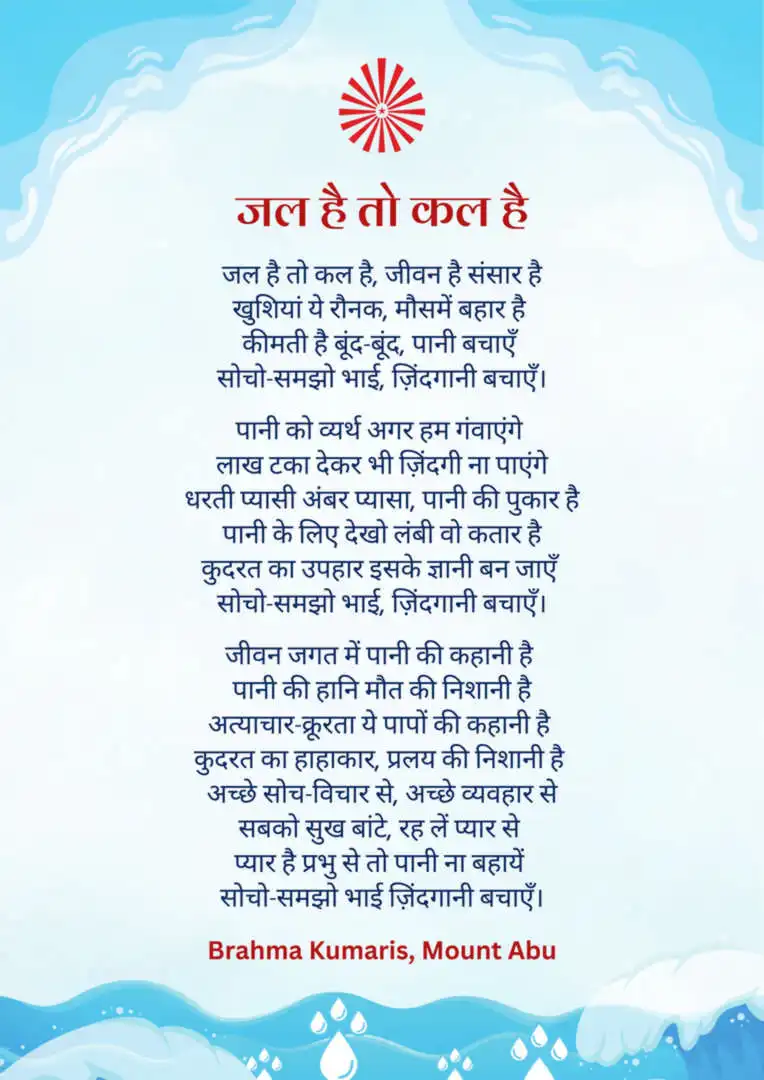 जल है तो कल है
जल है तो कल है, जीवन है संसार है
खुशियां ये रौनक, मौसमें बहार है
कीमती है बूंद-बूंद, पानी बचाएँ
सोचो-समझो भाई, ज़िंदगानी बचाएँ।
पानी को व्यर्थ अगर हम गंवाएंगे
लाख टका देकर भी ज़िंदगी ना पाएंगे
धरती प्यासी अंबर प्यासा, पानी की पुकार है
पानी के लिए देखो लंबी वो कतार है
कुदरत का उपहार इसके ज्ञानी बन जाएँ
सोचो-समझो भाई, ज़िंदगानी बचाएँ।
जीवन जगत में पानी की कहानी है
पानी की हानि मौत की निशानी है
अत्याचार-क्रूरता ये पापों की कहानी है
कुदरत का हाहाकार, प्रलय की निशानी है
अच्छे सोच-विचार से, अच्छे व्यवहार से
सबको सुख बांटे, रह लें प्यार से
प्यार है प्रभु से तो पानी ना बहायें
सोचो-समझो भाई ज़िंदगानी बचाएँ।
Brahma Kumaris, Mount Abu